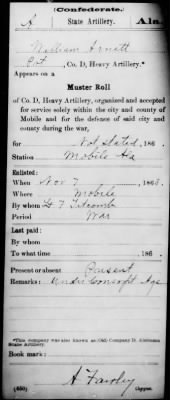 (Confederate.)
A State Artillery. Ala.
William Arnett
Pvt, Co. D, Heavy Artillery.*
Appears on a
Muster Roll
of Co. D, Heavy Artillery, organized and accepted
for service solely within the city and county of
Mobile and for the defence of said city and
county during the war,
for Not stated, 186 .
Station Mobile Ala
Enlisted:
When Nov 7, 1863.
Where Mobile
By whom F Titcomb
Period War
Last paid:
By whom
To what time , 186 .
Present or absent Present
Remarks: Under Conscpt Age
*This company was also known as Old Company D, Alabama
State Artillery.
Book mark:
(650) Copyist.